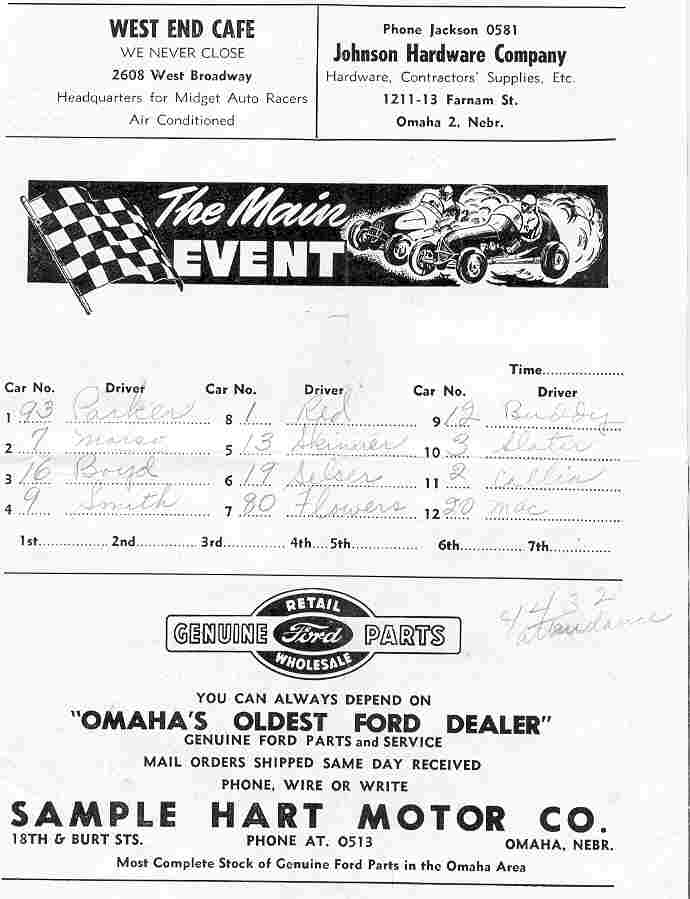 WEST END CAFE
WE NEVER CLOSE
2608 West Broadway
Headquarters for Midget Auto Racers
Air Conditioned
Phone Jackson 0581
Johnson Hardware Company
Hardware, Contractors' Supplies, Etc.
1211-13 Farnam St.
Omaha 2, Nebr.
The Main
EVENT
Time....................
Car No. Driver Car No. Driver Car No. Driver
1 93 Parker 8 1 Red 9 12 Buddy
2 7 5 13 Skinner 10 3 Slater
3 16 Boyd 6 19 11 2
4 9 Smith 7 80 Flowers 12 20 Mac
1st............... 2nd............... 3rd............... 4th.... 5th............... 6th............... 7th...............
4432
attendance
RETAIL
GENUINE Ford PARTS
WHOLESALE
YOU CAN ALWAYS DEPEND ON
"OMAHA'S OLDEST FORD DEALER"
GENUINE FORD PARTS and SERVICE
MAIL ORDERS SHIPPED SAME DAY RECEIVED
PHONE, WIRE OR WRITE
SAMPLE HART MOTOR CO.
18TH & BURT STS. PHONE AT. 0513 OMAHA, NEBR.
Most Complete Stock of Genuine Ford Parts in the Omaha Area